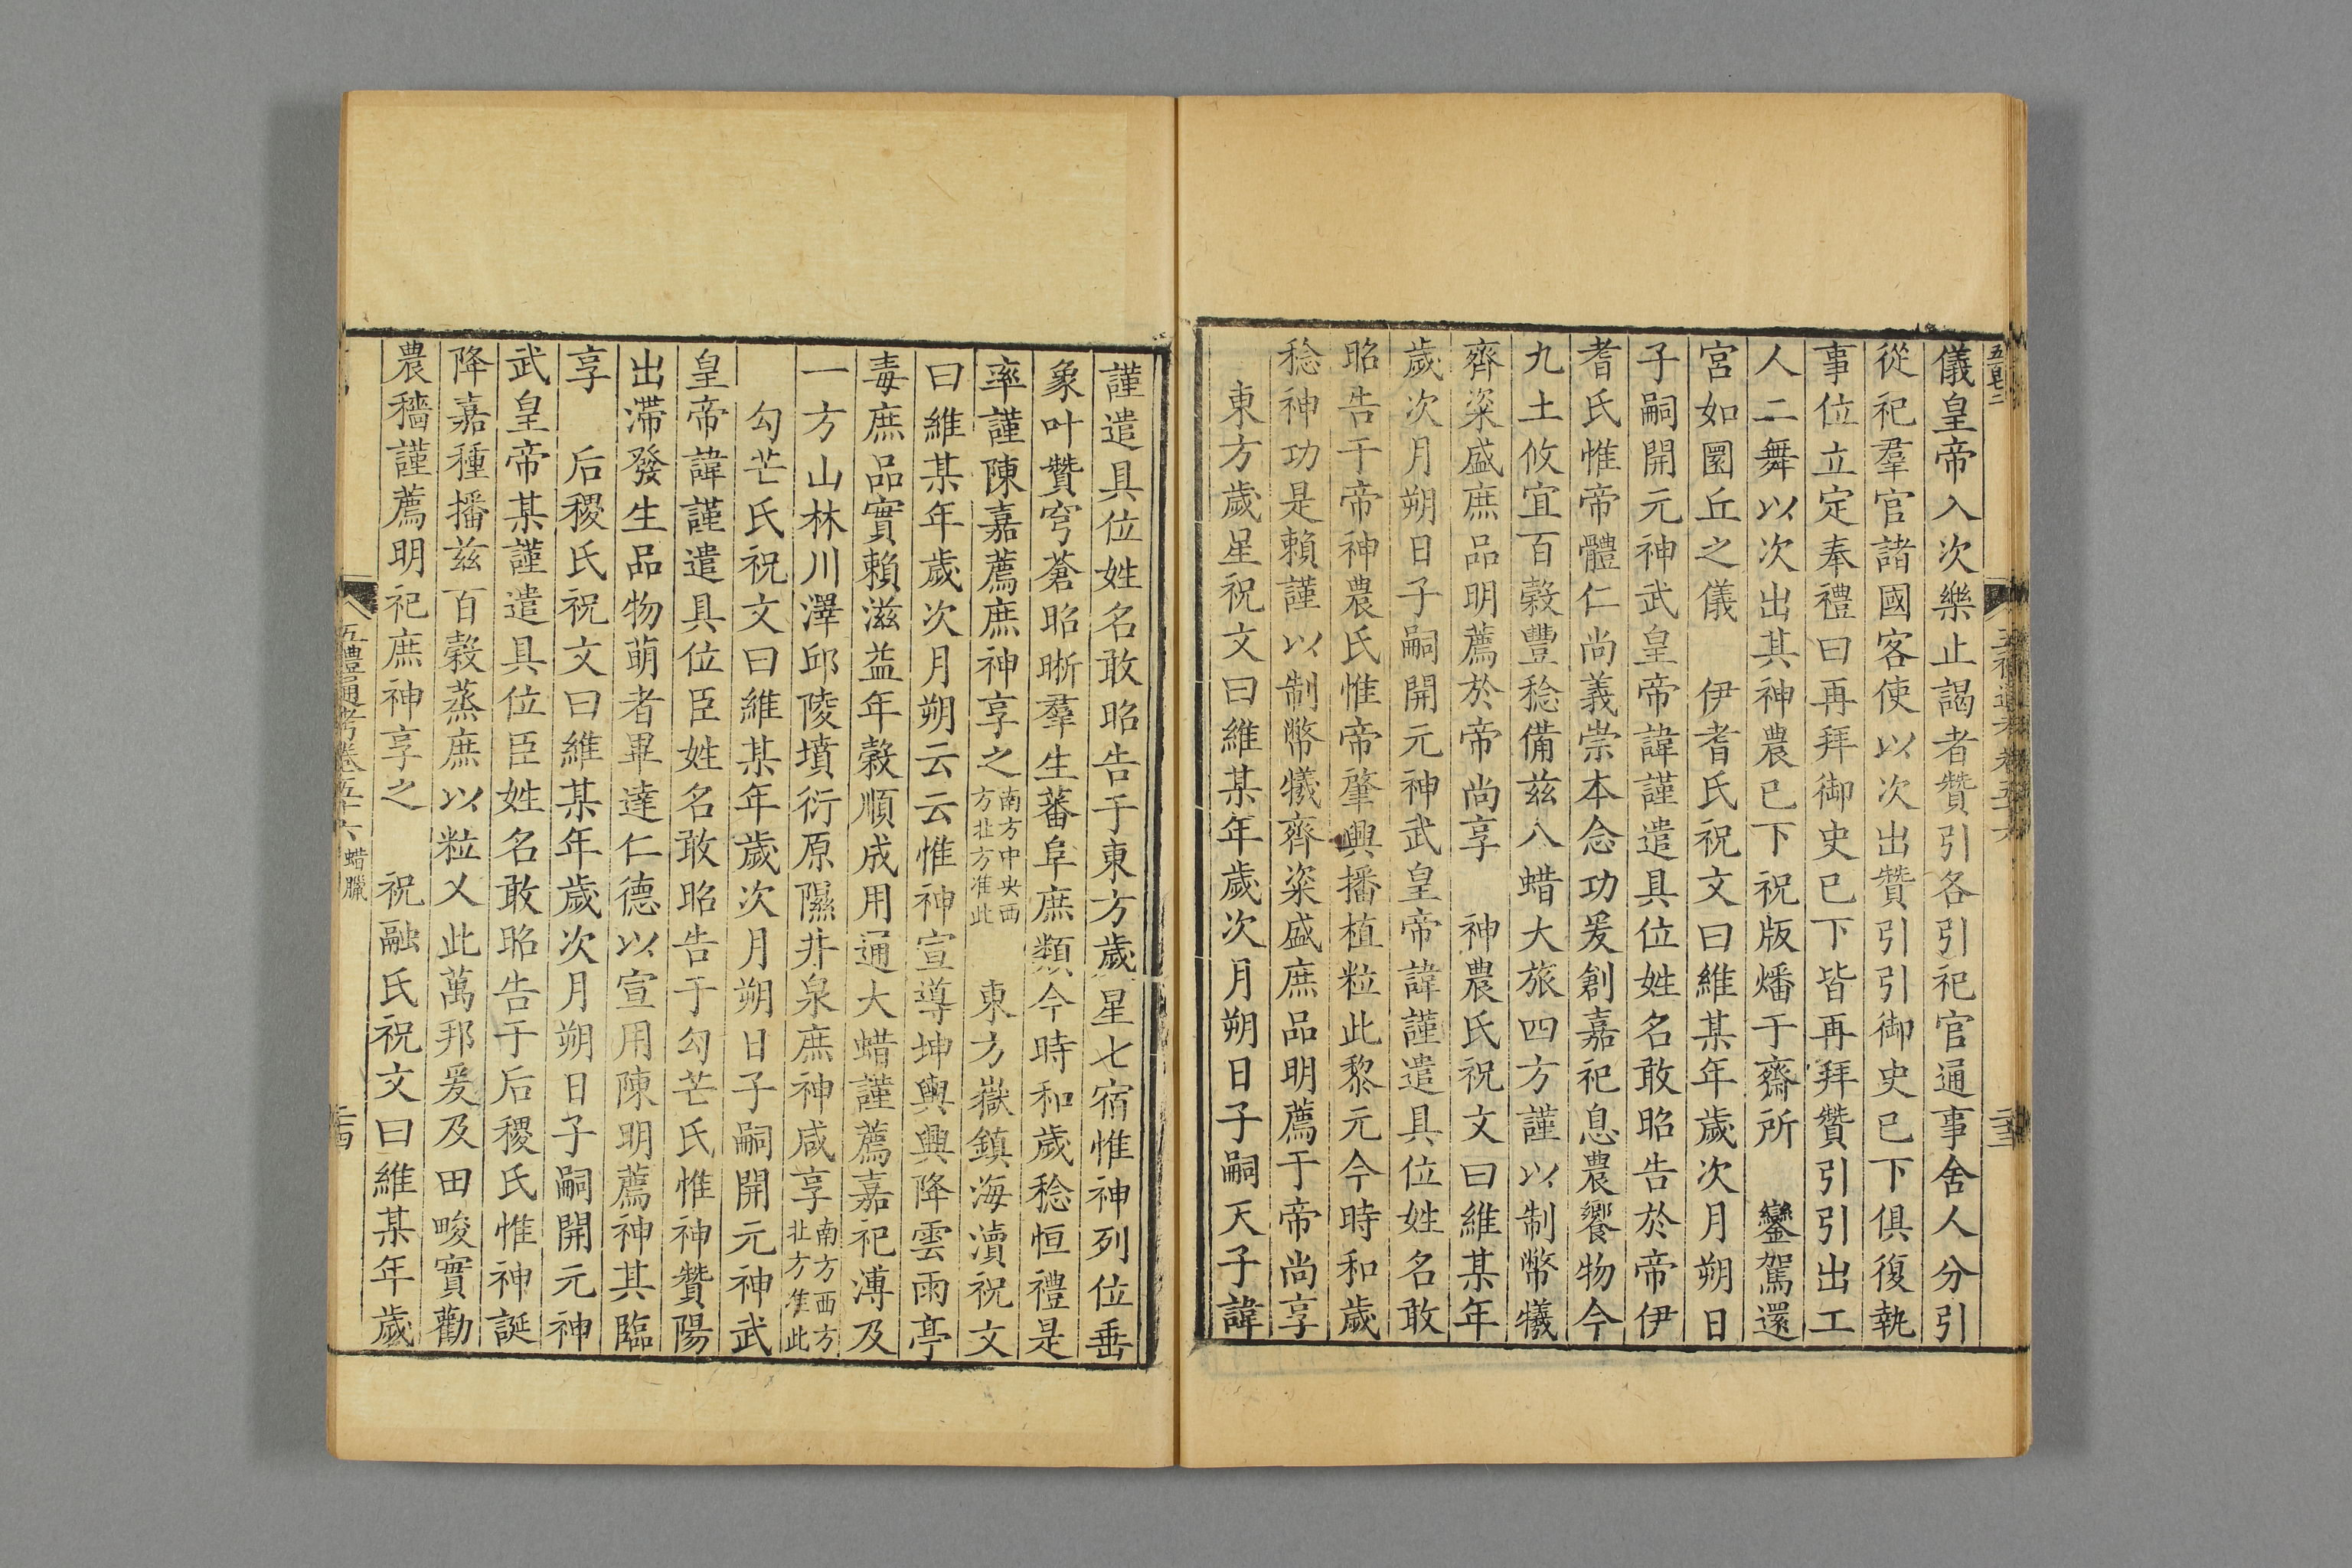 儀皇帝入次樂止謁者贊引各引祀官通事舍人分引
從祀羣官諸國客使以次出贊引引御史已下俱復執
事位立定奉禮曰再拜御史已下皆再拜贊引引出工
人二舞以次出其神農已下祝版燔于齋所　鑾駕還
宮如圜丘之儀　伊耆氏祝文曰維某年歲次月朔日
子嗣開元神武皇帝諱謹遣具位姓名敢昭告於帝伊
耆氏惟帝體仁尚義崇本念功爰創嘉祀息農饗物今
九土攸宜百穀豐稔備兹八蜡大旅四方謹以制幣犧
齊粢盛庶品明薦於帝尚享　神農氏祝文曰維某年
歲次月朔日子嗣開元神武皇帝諱謹遣具位姓名敢
昭告于帝神農氏惟帝肇興播植粒此黎元今時和歲
稔神功是賴謹以制幣犧齊粢盛庶品明薦于帝尚享
東方歲星祝文曰維某年歲次月朔日子嗣天子諱
謹遣具位姓名敢昭告于東方歲星七宿惟神列位垂
象叶贊穹蒼昭晰羣生蕃阜庶類今時和歲稔恒禮是
率謹陳嘉薦庶神享之南方中央西方北方准此　東方嶽鎮海瀆祝文
曰維某年歲次月朔云云惟神宣導坤輿興降雲雨亭
毒庶品實賴滋益年穀順成用通大蜡謹薦嘉祀溥及
一方山林川澤邱陵墳衍原隰井泉庶神咸享南方西方北方准此
勾芒氏祝文曰維某年歲次月朔日子嗣開元神武
皇帝諱謹遣具位臣姓名敢昭告于勾芒氏惟神贊陽
出滯發生品物萌者畢達仁德以宣用陳明薦神其臨
享　后稷氏祝文曰維某年歲次月朔日子嗣開元神
武皇帝某謹遣具位臣姓名敢昭告于后稷氏惟神誕
降嘉種播兹百穀蒸庶以粒乂此萬邦爰及田畯實勸
農穡謹薦明祀庶神享之　祝融氏祝文曰維某年歲
五禮通考卷五十六　蜡臘